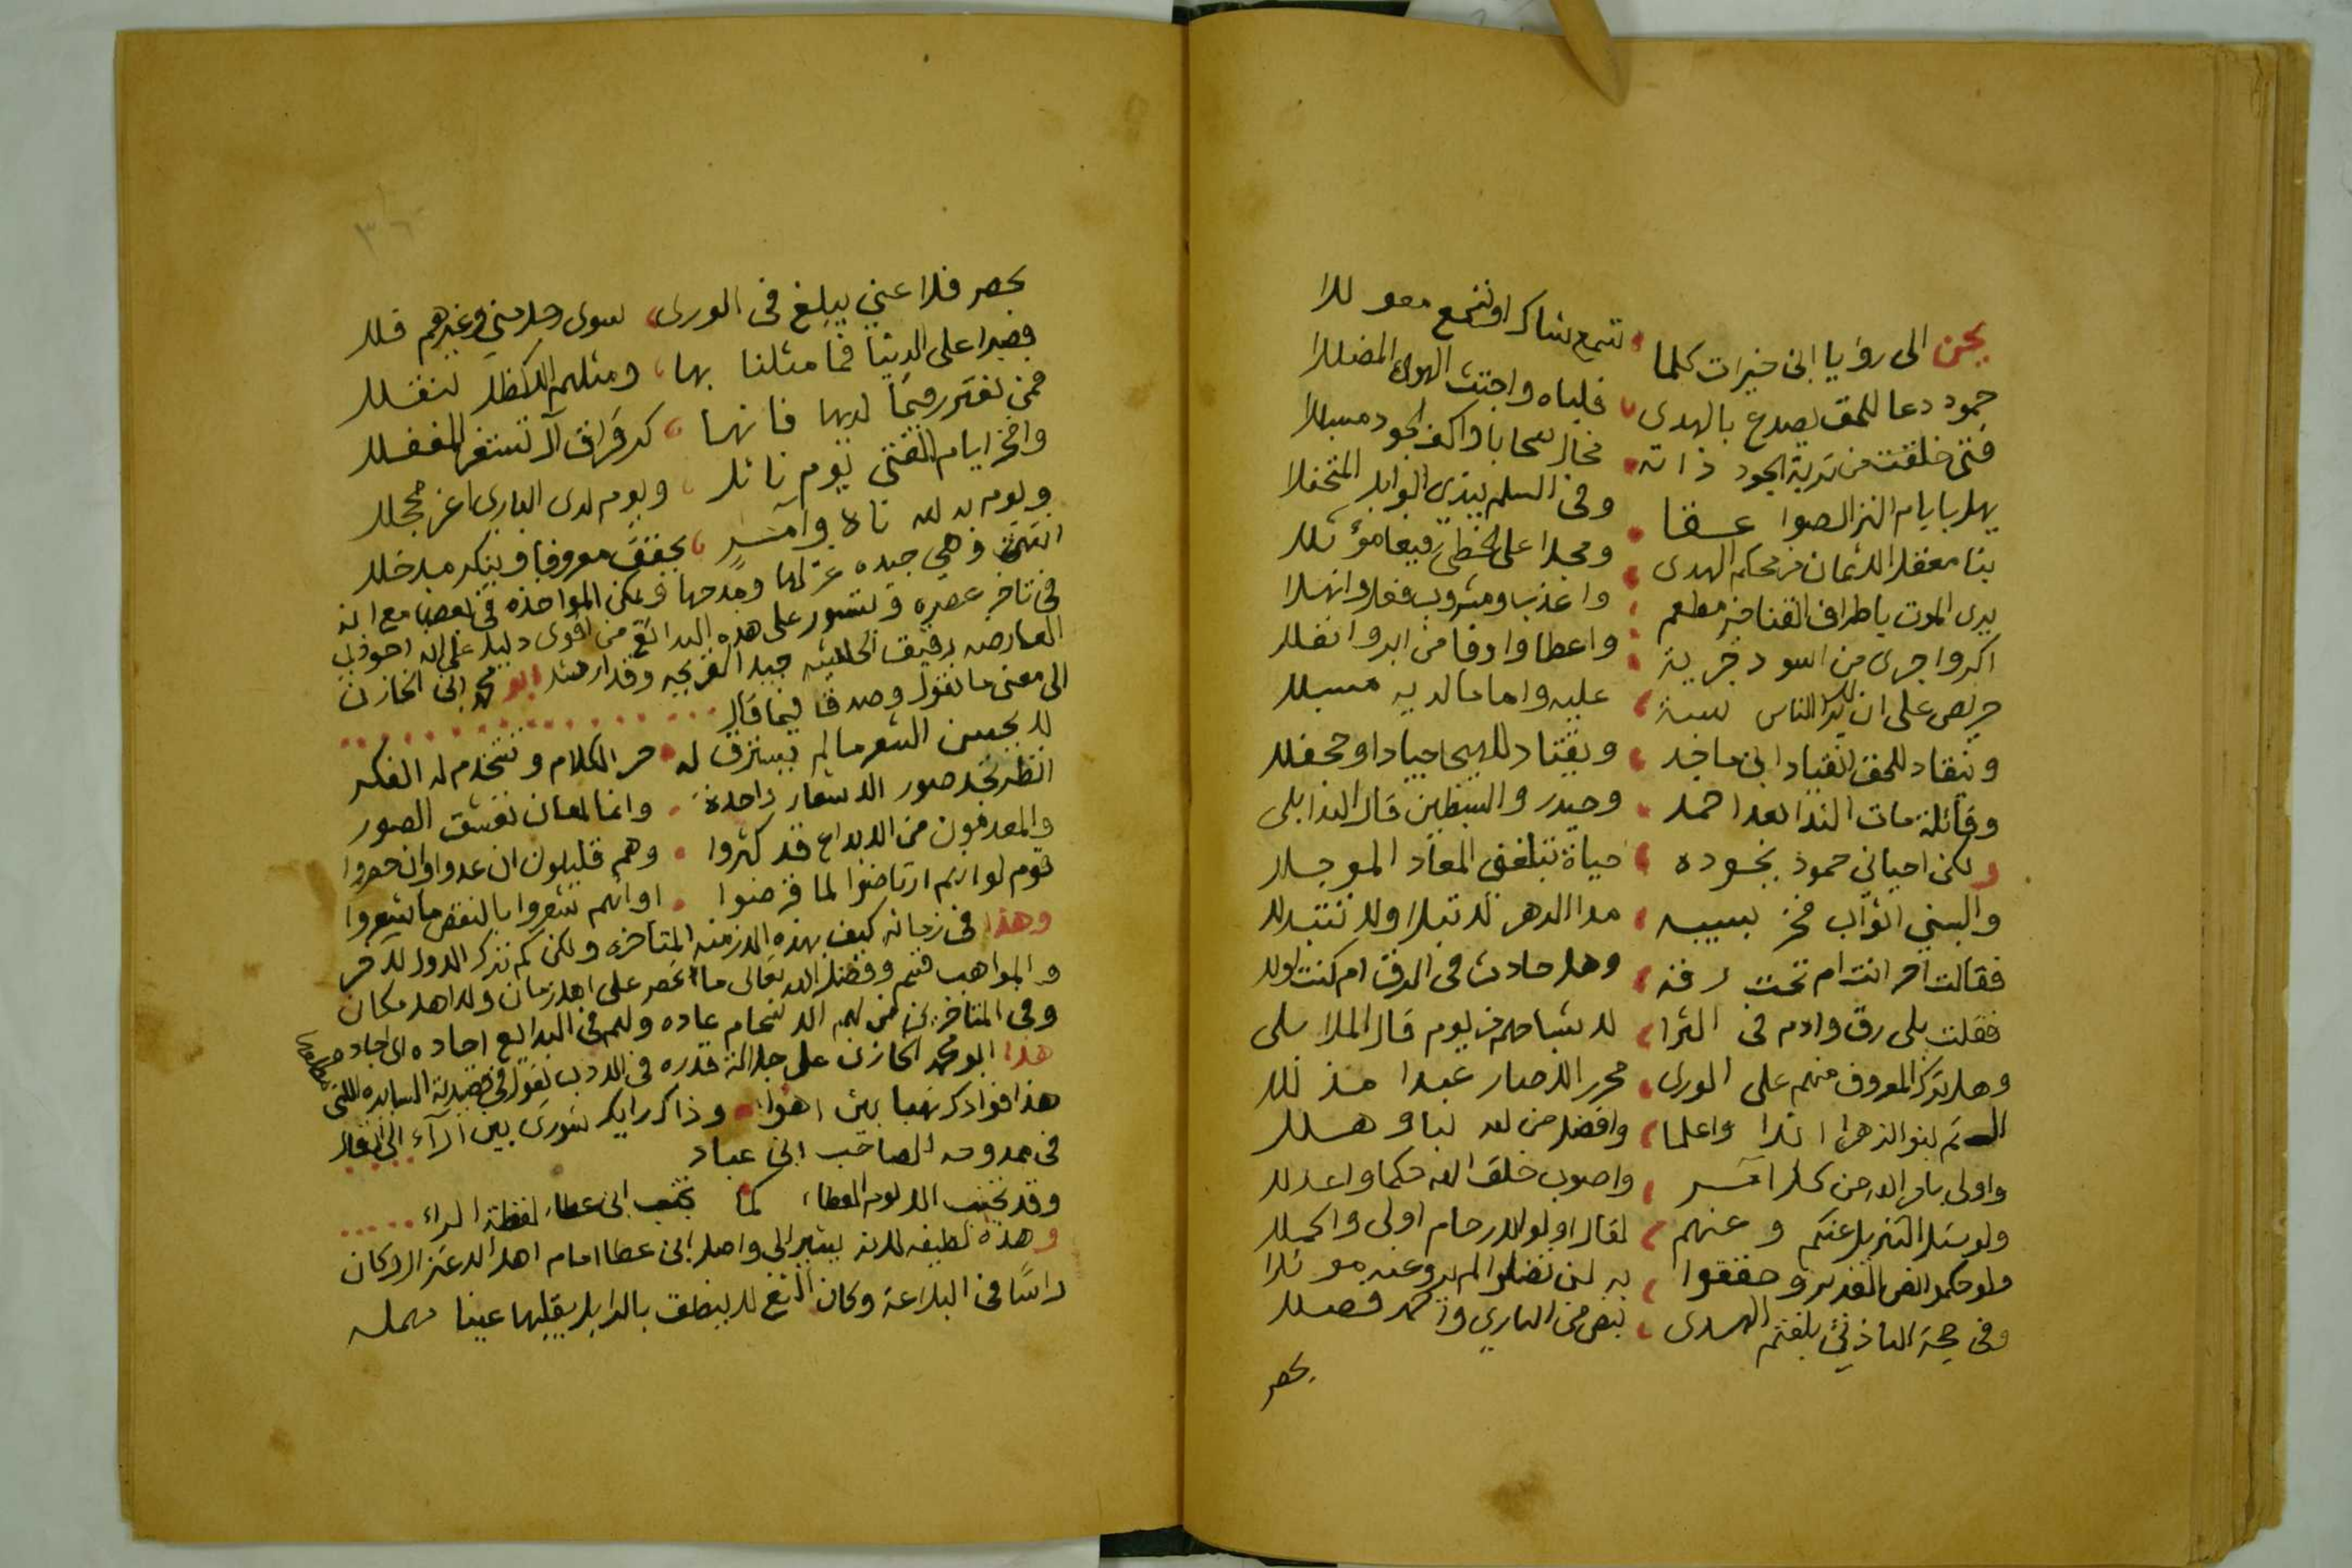 يحن الى رؤيا ابن خيرات كلما تتمع شاكر او تتمع معولا
حمود دعا للحق يصدع بالهدى فلباه واجتث الهوى المضللا
فتى خلقت من تربة الجود ذاته فخال سحابا واكف الجود مسبلا
يهل بايام النزال صواعقا وفى السلم يندى الوابل المثجلا
بنا معقل الايمان من محكم الهدى ومجدا على الخطى رفيعا مؤثلا
يرى الموت باطراف القنا خير مطعم واعذب ومشروب فعلا وانهلا
اكر واجرى من اسود خربية واعطا واوفا من ابر وانفلا
حريص على ان يذكر الناس نسبة عليه واما مالديه مسبلا
وينقاد للحق انقياد ابن ماجد ويقتاد للهيجا جيادا وجحفلا
وقائلة مات الندا بعد احمد وحيدر والسبطين قال الندا بلى
ولكن احياني حمود بجوده حياة تبلغنى المعاد الموجلا
والبسني اثواب فخر بسيبه مدا الدهر لا تبلا ولا تتبدلا
فقالت احر انت ام تحت رقه وهل حادث فى الرق ام كنت اولا
فقلت بلى رق وادم فى الثرا لابناحهم من يوم قال الملا بلى
وهل يترك المعروف منهم على الورى محرر الاصار عبدا مذللا
الستم بنو الزهرا اندا واعلما وافضل من لله لبا وهللا
واولى بامر الله من كل آمر واصوب خلق الله حكما واعدلا
ولو سئل التنزيل عنكم وعنهم لقال اولو الارحام اولى واكملا
ولو حكموا نص الغدير وحققوا به لن تضلوا لم يروا عنه موئلا
وفى حجة التاذين بلغتم الهدى بنص من البارى وانتم فصلا
بحصر
٣٦
بحصر فلا عني يبلغ فى الورى سوى رجل مني وغيرهم قلا
فصبرا على الدنيا فما مثلنا بها ومثلهم الا كظل تنقلا
فمن نفتر رقيما لديها فانها كرقراق آل تستفز المغفلا
وافخر ايام الفتى يوم نائل ويوم لدى البارى اغر محجلا
ويوم به لله ناه وآمر يحقق معروفا وينكر مدخلا
انتهت وهي جيده عزلها ومدحها ويمكن المواخذه فى بعضها مع انه
فى تاخر عصره وتسور على هذه البدائع من اقوى دليل على انه احوذي
العارضه رقيق الحاشيه جيد القريحه وقد ارشد ابو محمد ابن الخازن
الى معنى ما نقول وصدق فيما قال
لا يحسن الشعر مالم يسترق له حر الكلام وتستخدم له الفكر
انظر تجد صور الاشعار واحدة وانما لمعان تعشق الصور
والمعدمون من الابداع قد كثروا وهم قليلون ان عدوا وان حصروا
قوم لو انهم ارتاضوا لما قرضوا او انهم شعروا بالنقص ما شعروا
وهذا فى زمانه كيف بهذه الازمنه المتاخره ولكن كم ترك الاول للاخر
والمواهب قسم وفضل الله تعالى ما انحصر على اهل زمان ولا اهل مكان
وفى المتاخرين من لهم الانسجام عاده ولهم فى البدايع اجاده اى اجاده
هذا ابو محمد الخازن على جلالة قدره فى الادب يقول فى قصيدته السايره التى
هذا فوادك نهبا بين اهواء وذاك رايك شورى بين آراء الى ان قال
فى ممدوحه الصاحب ابن عباد
وقد تجنب الا لوم العطاء كما تجنب ابن عطاء لفظة الراء
وهذه لطيفه لانه يشير الى واصل ابن عطا امام اهل الاعتزال وكان
راسا فى البلاغة وكان الثغ لا ينطق بالرا بل يقلبها غينا مهمله